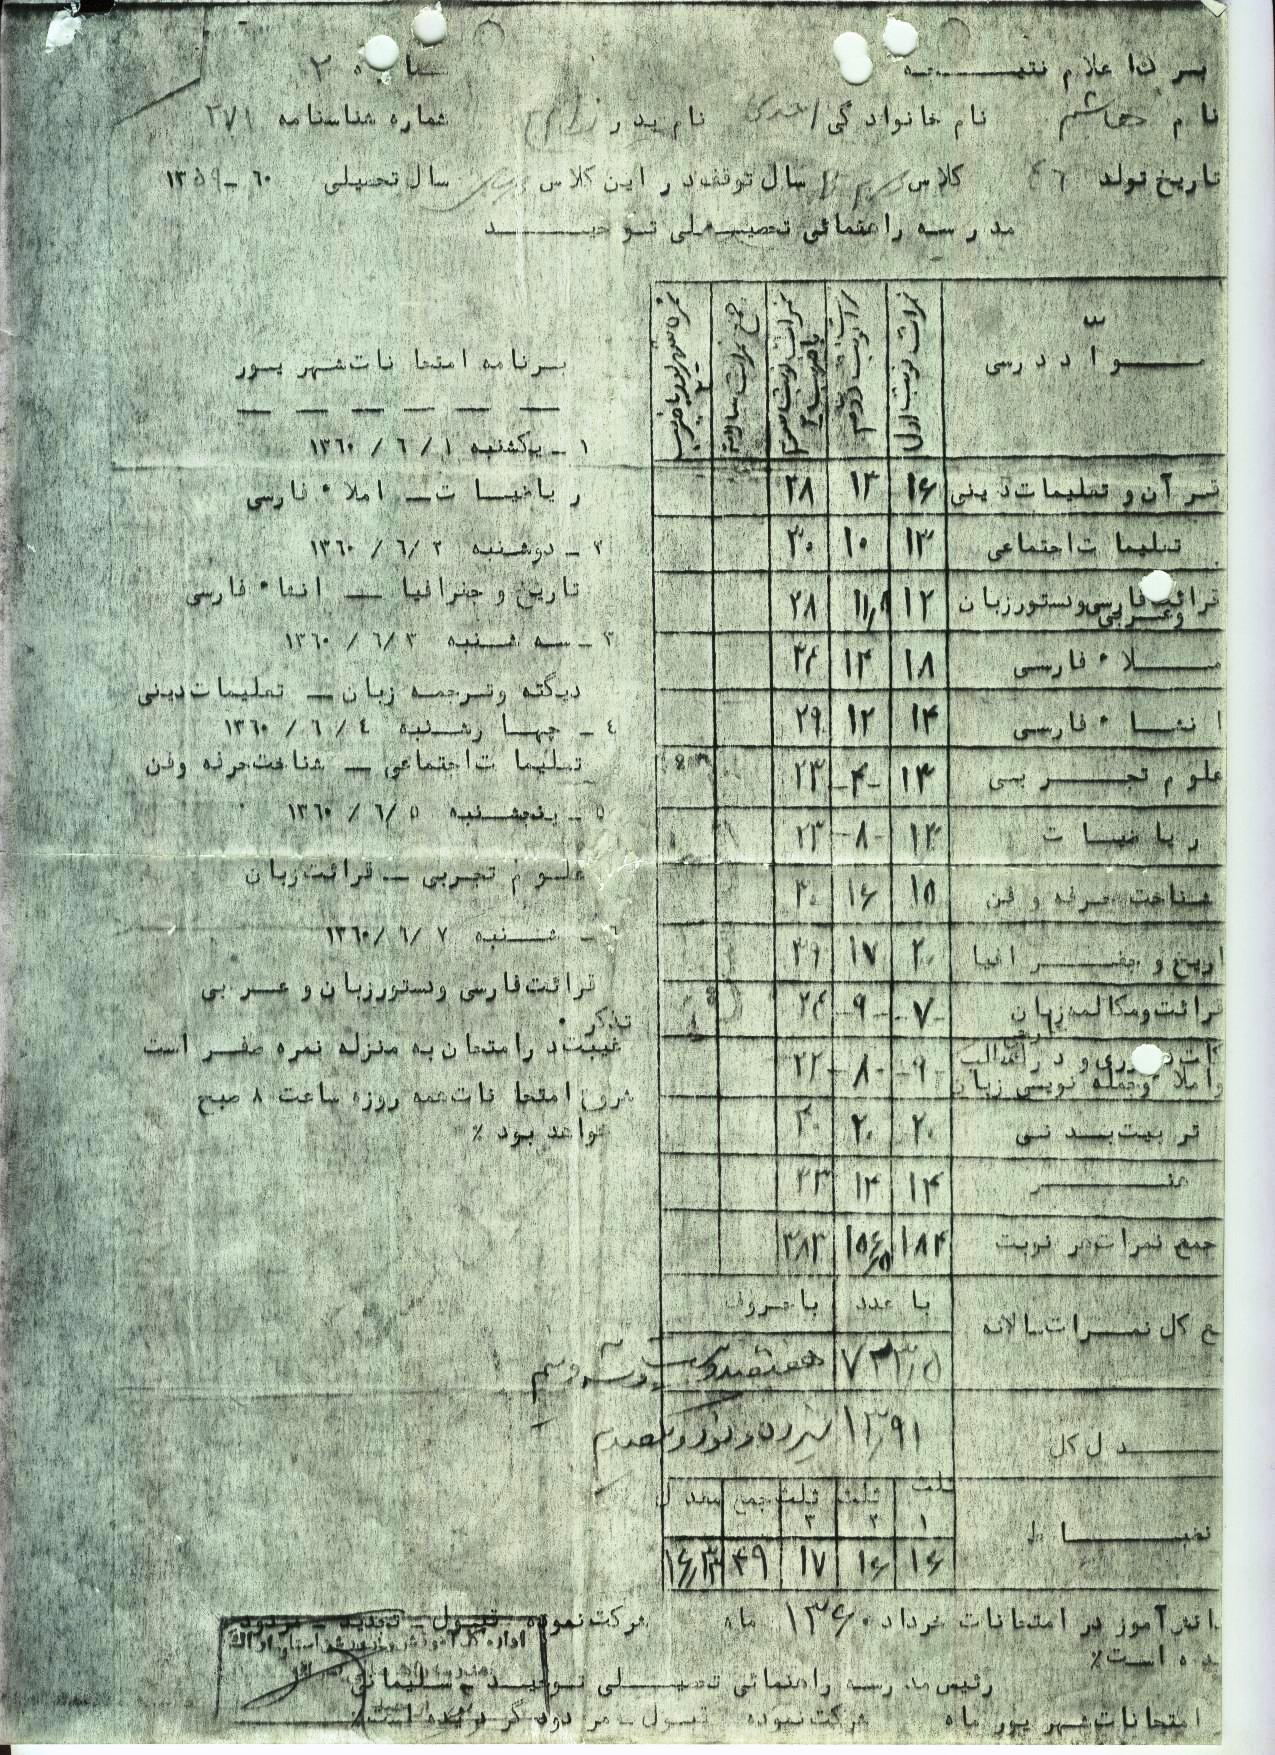 برگ اعلام نتیجه شماره ۲
نام هاشم نام خانوادگی نام پدر شماره شناسنامه ۲۷۱
تاریخ تولد ٤٦ کلاس سوم سال توقف در این کلاس سال تحصیلی ٦۰ - ۱۳۵۹
مدرسه راهنمائی تحصیلی توحید
مواد درسی نمرات نوبت اول نمرات نوبت دوم نمرات نوبت سوم با ضریب ۲ جمع نمرات سالانه نمره شهریور با ضریب
قرآن و تعلیمات دینی ۱۶ ۱۳ ۲۸
تعلیمات اجتماعی ۱۳ ۱۰ ۳۰
قرائت فارسی و دستور زبان و عربی ۱۲ ۱۱/۵ ۲۸
املاء فارسی ۱۸ ۱۴ ۳۴
انشاء فارسی ۱۴ ۱۲ ۲۹
علوم تجربی ۱۴ -۴- ۲۳
ریاضیات ۱۴ -۸- ۲۳
شناخت حرفه و فن ۱۵ ۱۶ ۳۰
تاریخ و جغرافیا ۲۰ ۱۷ ۳۹
قرائت و مکالمه زبان -۷- -۹- ۲۴
واملاء و جمله نویسی زبان -۹- -۸- ۲۲
تربیت بدنی ۲۰ ۲۰ ۴۰
هنر ۱۴ ۱۴ ۳۳
جمع نمرات هر نوبت ۱۸۴ ۱۵۶/۵ ۳۸۳
جمع کل نمرات سالانه با عدد با حروف
۷۲۳/۵ هفتصدو بیست و سه و نیم
معدل کل ۱۳/۹۱ سیزده و نود و یکصدم
انضباط ثلث ۱ ثلث ۲ ثلث ۳ جمع معدل
۱۶ ۱۶ ۱۷ ۴۹ ۱۶/۳۳
برنامه امتحانات شهریور
۱ - یکشنبه ۱ / ٦ / ۱۳٦۰
ریاضیات - املاء فارسی
۲ - دوشنبه ۲ / ٦ / ۱۳٦۰
تاریخ و جغرافیا - انشاء فارسی
۳ - سه شنبه ۳ / ٦ / ۱۳٦۰
دیکته و ترجمه زبان - تعلیمات دینی
٤ - چهارشنبه ٤ / ٦ / ۱۳٦۰
تعلیمات اجتماعی - شناخت حرفه وفن
۵ - پنجشنبه ۵ / ٦ / ۱۳٦۰
علوم تجربی - قرائت زبان
٦ - شنبه ۷ / ٦ / ۱۳٦۰
قرائت فارسی و دستور زبان و عربی
تذکر .
غیبت در امتحان به منزله نمره صفر است
شروع امتحانات همه روزه ساعت ۸ صبح
خواهد بود ٪
دانش آموز در امتحانات خرداد ماه ۱۳۶۰ شرکت نموده قبول - تجدید - مردود
شده است٪
رئیس مدرسه راهنمائی تحصیلی توحید - سلیمانی
امتحانات شهریور ماه شرکت نموده قبول - مردود گردیده است٪